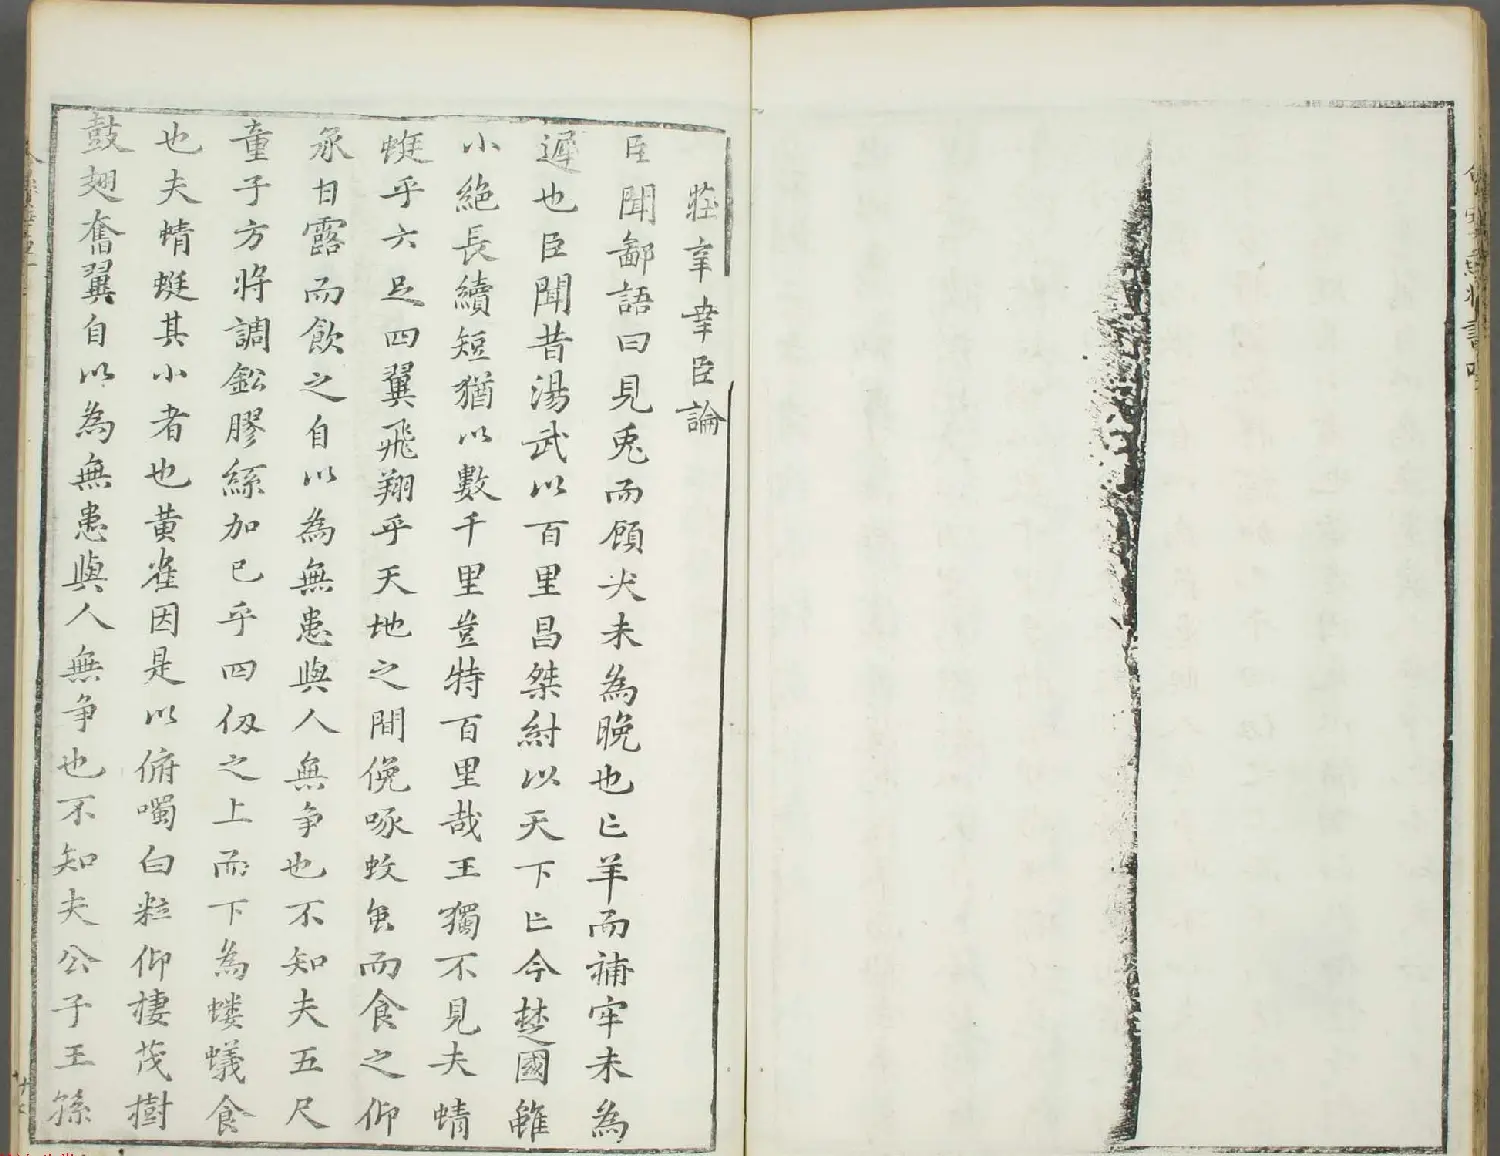 莊辛幸臣論
臣聞鄙語曰見兎而顧犬未為晚也亡羊而補牢未為
遲也臣聞昔湯武以百里昌桀紂以天下亡今楚國雖
小絶長續短猶以數千里豈特百里哉王獨不見夫蜻
蜓乎六足四翼飛翔乎天地之間俛啄蚊䖟而食之仰
承甘露而飲之自以為無患與人無爭也不知夫五尺
童子方將調鈆膠絲加已乎四仭之上而下為螻蟻食
也夫蜻蜓其小者也黄雀因是以俯噣白粒仰棲茂樹
鼓翅奮翼自以為無患與人無爭也不知夫公子王孫